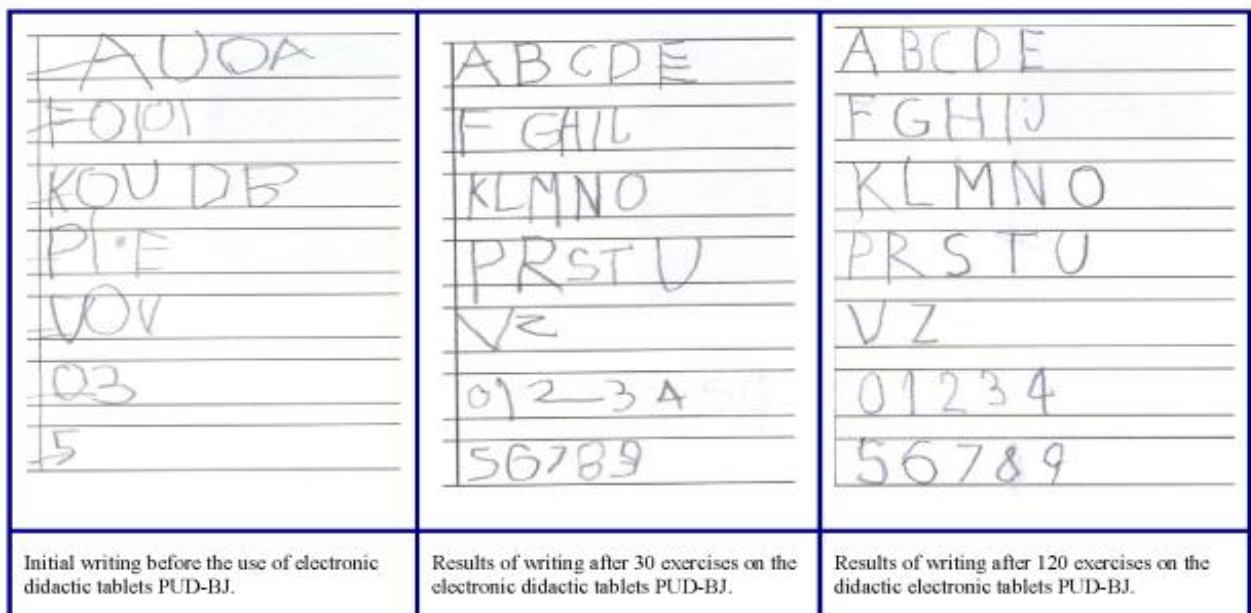 A U O A
F O I O I
K O U D B
P I E
U O V
0 3
5
Initial writing before the use of electronic
didactic tablets PUD-BJ.
A B C D E
F G H I L
K L M N O
P R S T U
V Z
0 1 2 3 4
5 6 7 8 9
Results of writing after 30 exercises on the
electronic didactic tablets PUD-BJ.
A B C D E
F G H I J
K L M N O
P R S T U
V Z
0 1 2 3 4
5 6 7 8 9
Results of writing after 120 exercises on the
didactic electronic tablets PUD-BJ.